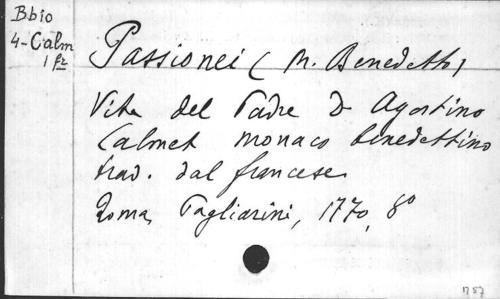 Bbio
4-Calm
1 fr
Passionei ( M. Benedetto)
Vita del Padre D Agostino
Calmet monaco benedettino
trad. dal francese
Roma, Pagliarini, 1770, 8°
1787